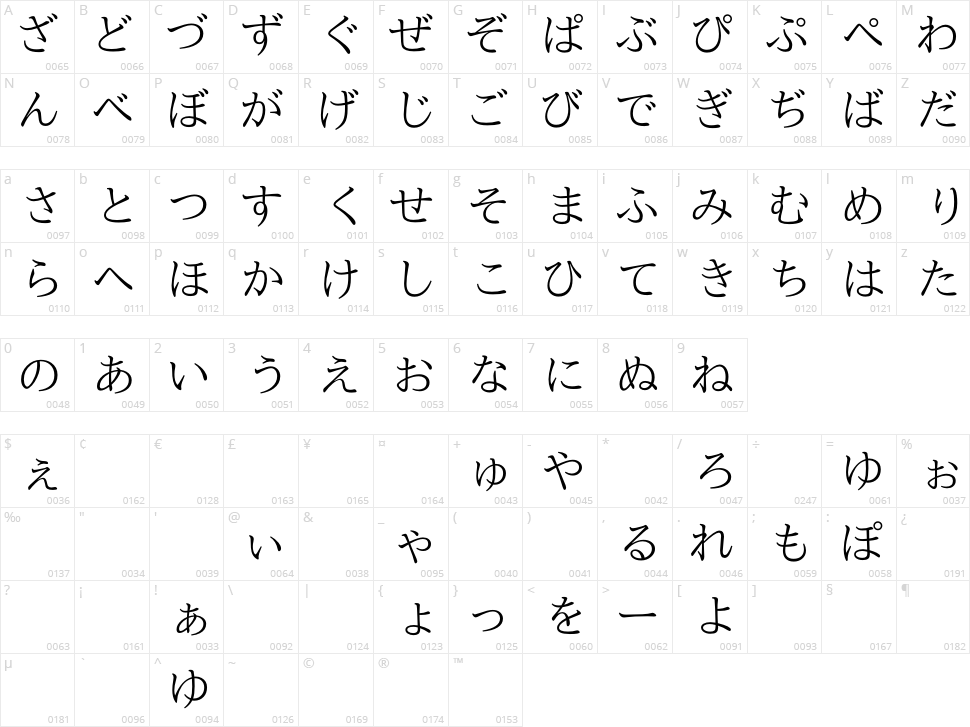 A B C D E F G H I J K L M
ざ ど づ ず ぐ ぜ ぞ ぱ ぶ ぴ ぷ ぺ わ
0065 0066 0067 0068 0069 0070 0071 0072 0073 0074 0075 0076 0077
N O P Q R S T U V W X Y Z
ん べ ぼ が げ じ ご び で ぎ ぢ ば だ
0078 0079 0080 0081 0082 0083 0084 0085 0086 0087 0088 0089 0090
a b c d e f g h i j k l m
さ と つ す く せ そ ま ふ み む め り
0097 0098 0099 0100 0101 0102 0103 0104 0105 0106 0107 0108 0109
n o p q r s t u v w x y z
ら へ ほ か け し こ ひ て き ち は た
0110 0111 0112 0113 0114 0115 0116 0117 0118 0119 0120 0121 0122
0 1 2 3 4 5 6 7 8 9
の あ い う え お な に ぬ ね
0048 0049 0050 0051 0052 0053 0054 0055 0056 0057
$ ¢ € £ ¥ ¤ + - * / ÷ = %
ぇ ゅ や ろ ゆ ぉ
0036 0162 0128 0163 0165 0164 0043 0045 0042 0047 0247 0061 0037
‰ " ' @ & _ ( ) , . ; : ¿
ぃ ゃ る れ も ぽ
0137 0034 0039 0064 0038 0095 0040 0041 0044 0046 0059 0058 0191
? ¡ ! \ | { } < > [ ] § ¶
ぁ ょ っ を ー よ
0063 0161 0033 0092 0124 0123 0125 0060 0062 0091 0093 0167 0182
µ ` ^ ~ © ® ™
ゆ
0181 0096 0094 0126 0169 0174 0153